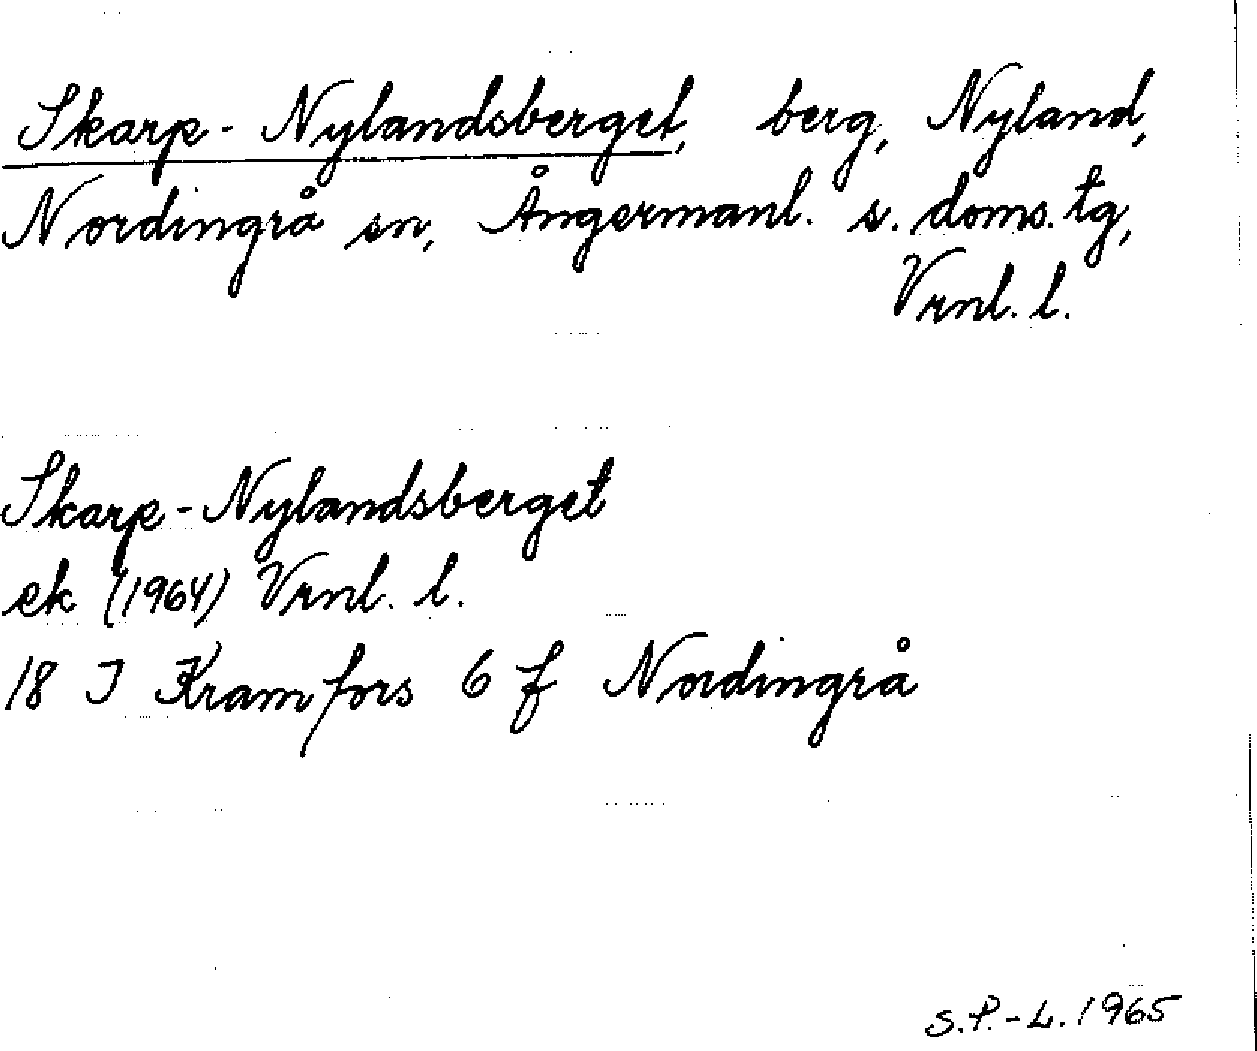 Skarp-Nylandsberget, berg, Nyland,
Nordingrå sn, Ångermanl. s. doms. tg,
Vrnl. l.
Skarp-Nylandsberget
ek (1964) Vrnl. l.
18 I Kramfors 6 f Nordingrå
S.P.-L. 1965